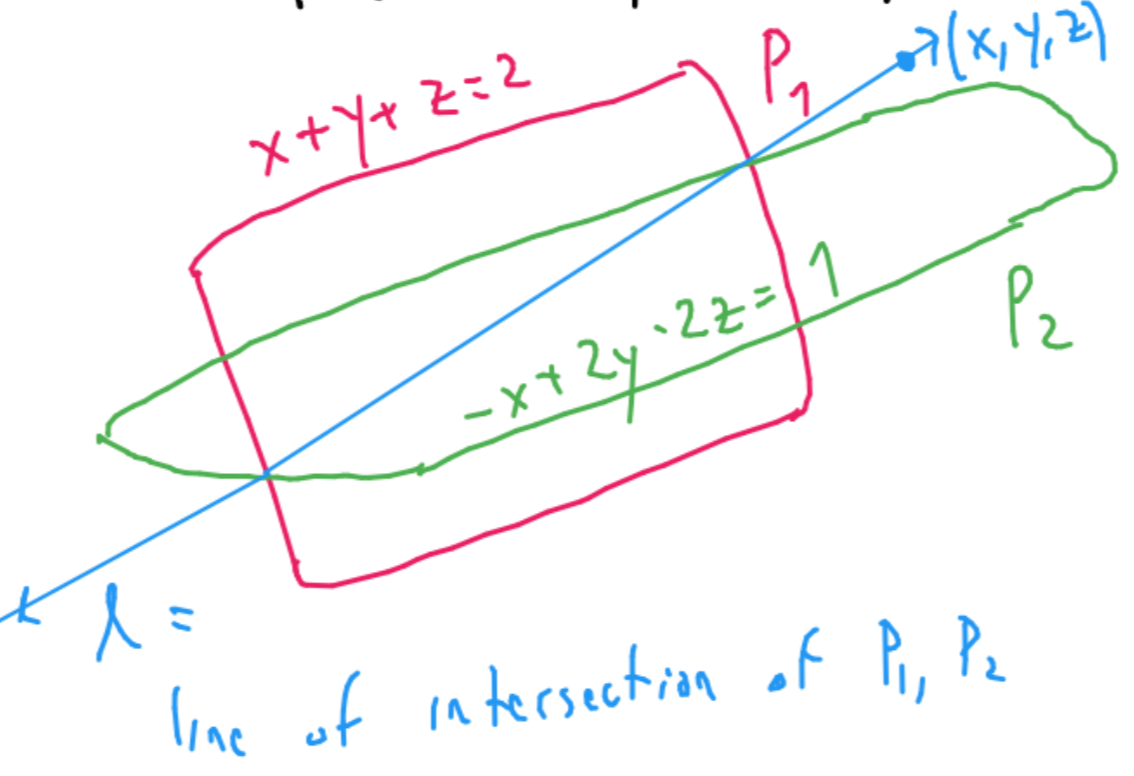 (x, y, z)
P₁
x + y + z = 2
-x + 2y - 2z = 1
P₂
λ =
line of intersection of P₁, P₂